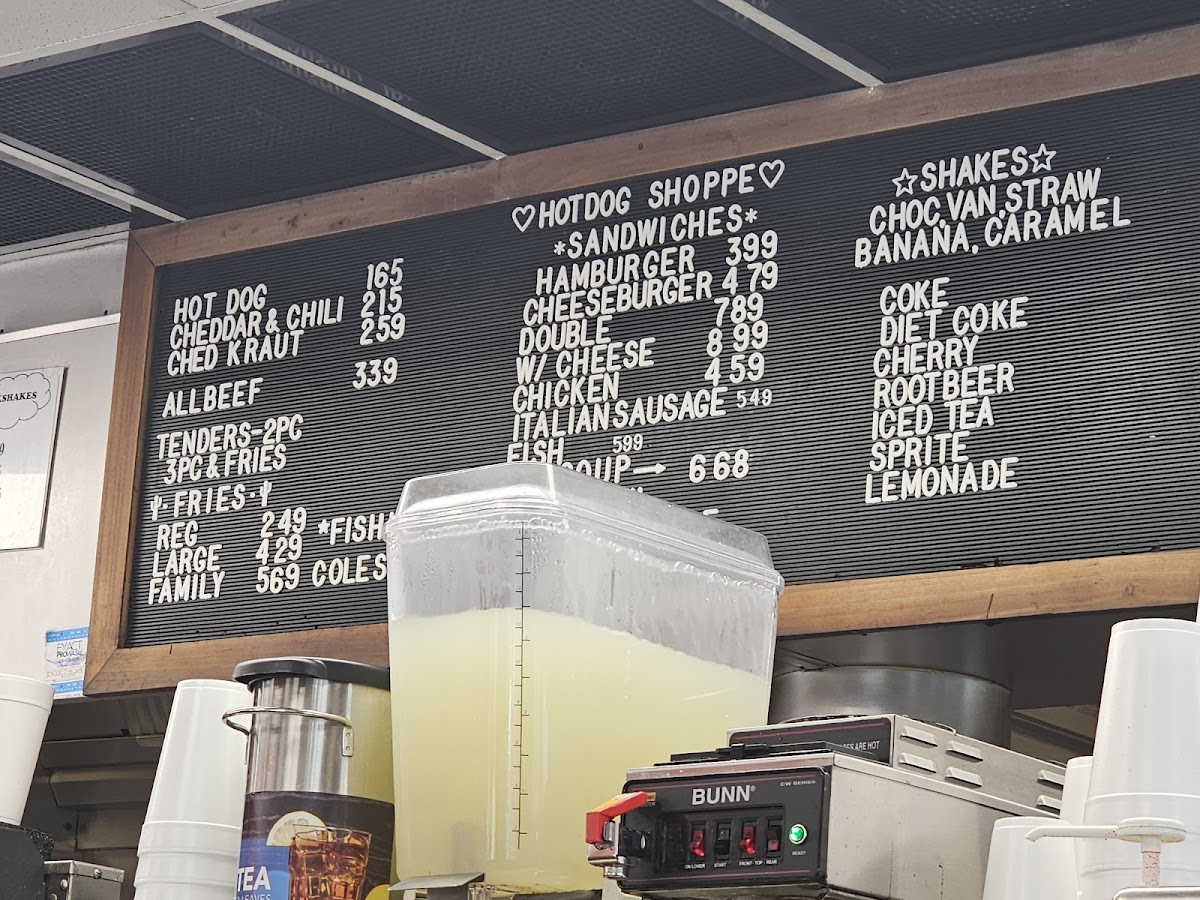 HOT DOG 165
CHEDDAR & CHILI 215
CHED KRAUT 259
ALLBEEF 339
TENDERS-2PC
3PC & FRIES
FRIES
REG 249
LARGE 429
FAMILY 569
*FISH
COLES
♡HOTDOG SHOPPE♡
*SANDWICHES*
HAMBURGER 399
CHEESEBURGER 479
DOUBLE 789
W/ CHEESE 899
CHICKEN 459
ITALIAN SAUSAGE 549
FISH 599
SOUP→ 668
☆SHAKES☆
CHOC, VAN, STRAW
BANANA, CARAMEL
COKE
DIET COKE
CHERRY
ROOTBEER
ICED TEA
SPRITE
LEMONADE
SHAKES
EXACT
PROWASH
TEA
LEAVES
ARE HOT
BUNN®
CW SERIES
ON/LOWER START FRONT-TOP REAR READY